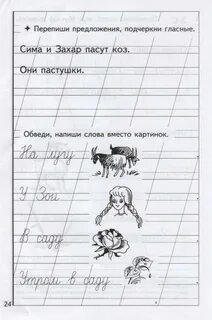 ✦ Перепиши предложения, подчеркни гласные.
Сима и Захар пасут коз.
Они пастушки.
Обведи, напиши слова вместо картинок.
На лугу
У Зои
В саду
Утром в саду
24